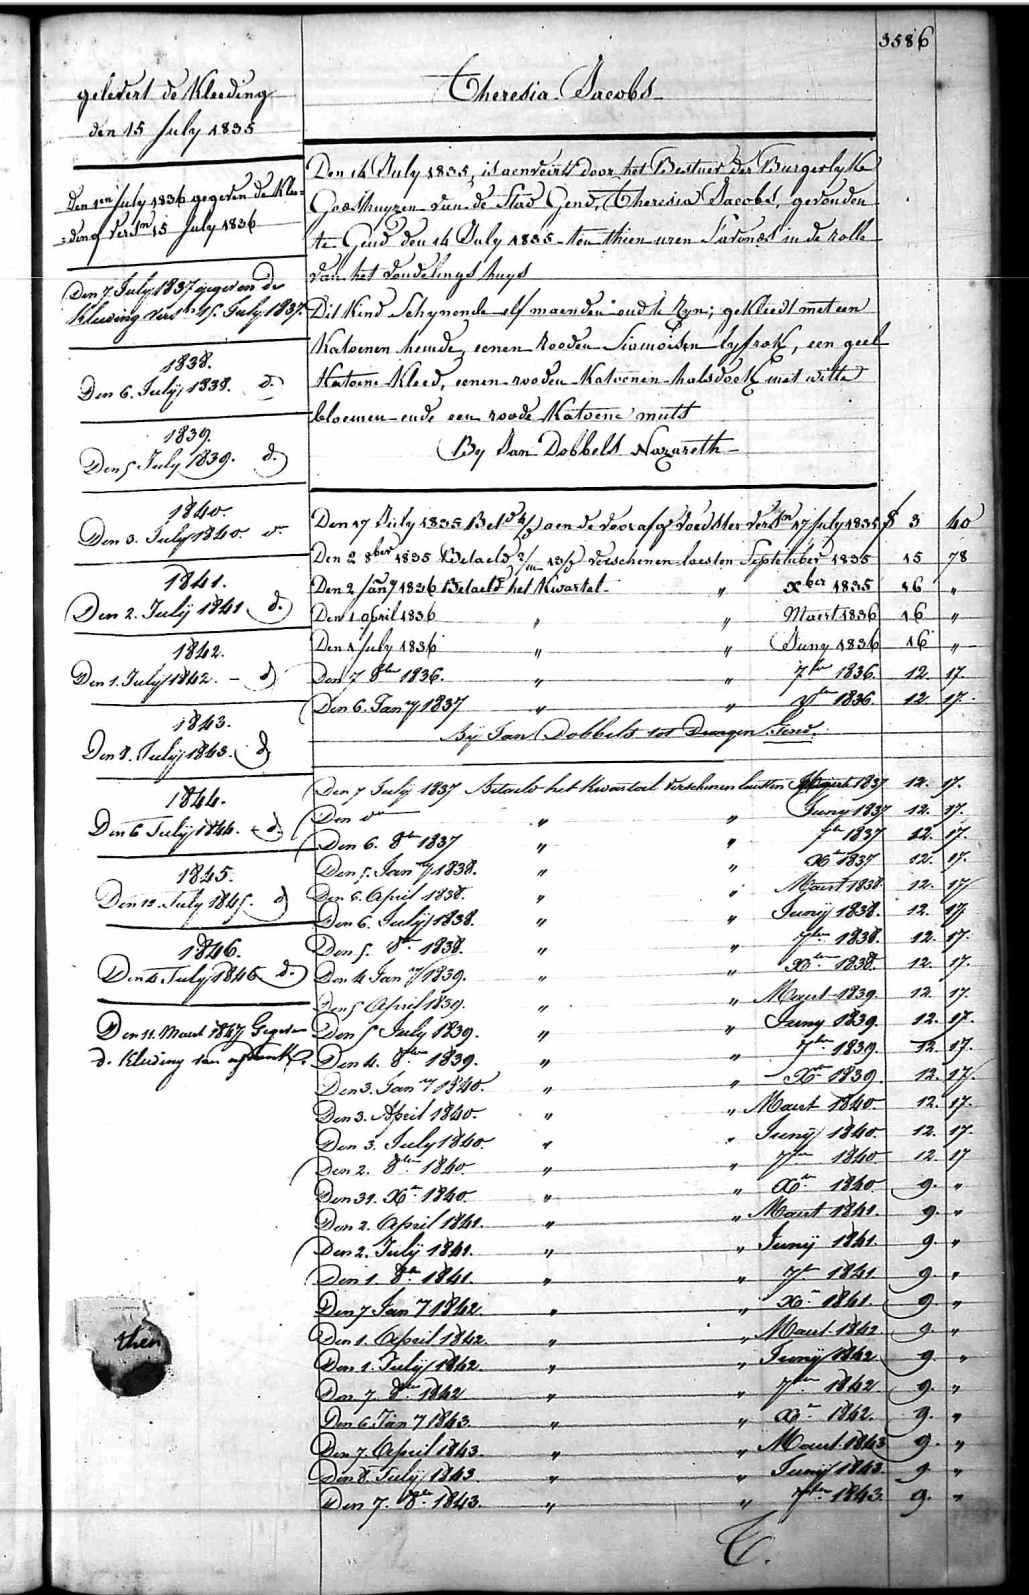 3586
gelevert de Kleeding
den 15 July 1835
Den 1en July 1836 gegeven de Klee=
=ding versn 15 July 1836
Den 7 July 1837 gegeven de
kleeding versn 15. July 1837.
1838.
Den 6. Julij 1838. d.
1839.
Den 5 July 1839. d.
1840.
Den 3. July 1840. d.
1841.
Den 2. Julij 1841 d.
1842.
Den 1. July 1842. - d
1843.
Den 8. Julij 1843. d
1844.
Den 6 Julij 1844. d.
1845.
Den 12. July 1845. d
1846.
Den 4. July 1846 d.
Den 11. Maert 1847 Gegeven
d. kleeding van
then
Theresia Jacobs
Den 14 July 1835, is aenveird door het Bestuer der Burgerlyke
Godshuyzen van de Stad Gend, Theresia Jacobs, gevonden
te Gend den 14 July 1835 ten thien uren S'avonds in de rolle
van het vondelings huys
Dit Kind Schynende elf maenden oud te zyn; gekleedt met een
Katoenen hemde, eenen rooden Siamoisen lyfrok, een geel
Katoene Kleed, eenen rooden Katoenen halsdoek met witte
bloemen ende een roode Katoene muts
By Jan Dobbels Nazareth
Den 17 July 1835 aen de voorafge voedster versn 17 July 1835 3 40
Den 2 8ber 1835 Betaeld verschenen laesten September 1835 15 78
Den 2 Jany 1836 Betaeld het Kwartel " xber 1835 16 "
Den 1 april 1836 " " Maert 1836 16 "
Den 1 July 1836 " " Juny 1836 16 "
Den 7 8ber 1836. " " 7ber 1836. 12. 17.
Den 6. Jany 1837 " " xber 1836. 12. 17.
Bij Jan Dobbels tot Drongen
Den 7 July 1837 Betaeld het Kwartael verschenen laesten Maert 1837 12. 17.
Den do " " Juny 1837 12. 17.
Den 6. 8ber 1837 " " 7ber 1837 12. 17.
Den 5. Jany 1838. " " Xber 1837 12. 17.
Den 6. April 1838. " " Maert 1838. 12. 17
Den 6. Julij 1838. " " Junij 1838. 12. 17.
Den 5. 8ber 1838. " " 7ber 1838. 12. 17.
Den 4 Jany 1839. " " Xber 1838. 12. 17.
Den 5 April 1839. " " Maert 1839. 12. 17.
Den 5 July 1839. " " Juny 1839. 12. 17.
Den 4. 8ber 1839. " " 7ber 1839. 12. 17.
Den 3. Jany 1840. " " Xber 1839 12. 17.
Den 3. April 1840. " " Maert 1840. 12. 17.
Den 3. July 1840. " " Junij 1840. 12. 17.
Den 2. 8ber 1840. " " 7ber 1840 12. 17
Den 31. Xber 1840. " " Xber 1840 9. "
Den 2. April 1841. " " Maert 1841. 9. "
Den 2. Julij 1841. " " Junij 1841. 9. "
Den 1. 8ber 1841. " " 7ber 1841 9. "
Den 7 Jany 1842. " " Xber 1841. 9. "
Den 1. April 1842. " " Maert 1842 9. "
Den 1. Julij 1842. " " Junij 1842 9. "
Den 7. 8ber 1842 " " 7ber 1842 9. "
Den 6. Jany 1843. " " Xber 1842. 9. "
Den 7. April 1843. " " Maert 1843 9. "
Den 8. Julij 1843. " " Junij 1843. 9. "
Den 7. 8ber 1843. " " 7ber 1843. 9. "